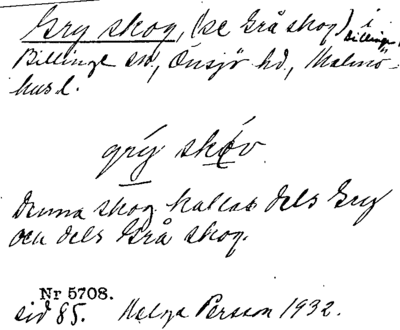 Gry skog, (se Grå skog) i Billinge,
Billinge sn, Onsjö hd, Malmö-
hus l.
grý skóv
Denna skog kallas dels Gry
och dels Grå skog.
Nr 5708.
sid 85. Helga Persson 1932.